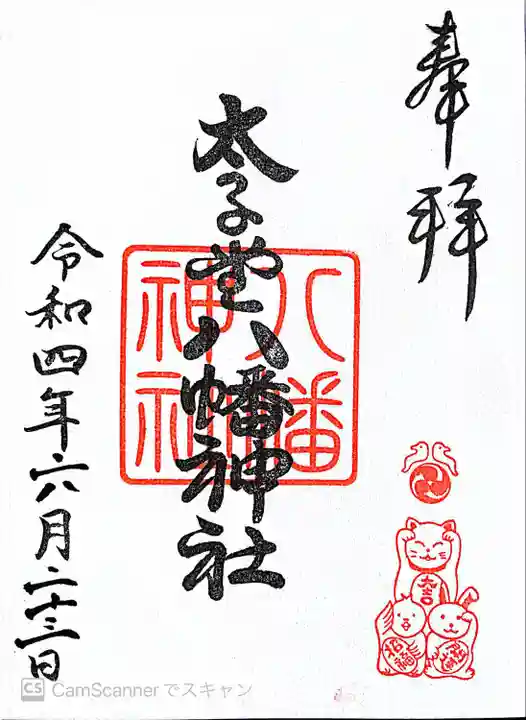 奉拝
太子堂八幡神社
八幡
神社
令和四年六月二十三日
大吉
招福
CS CamScannerでスキャン